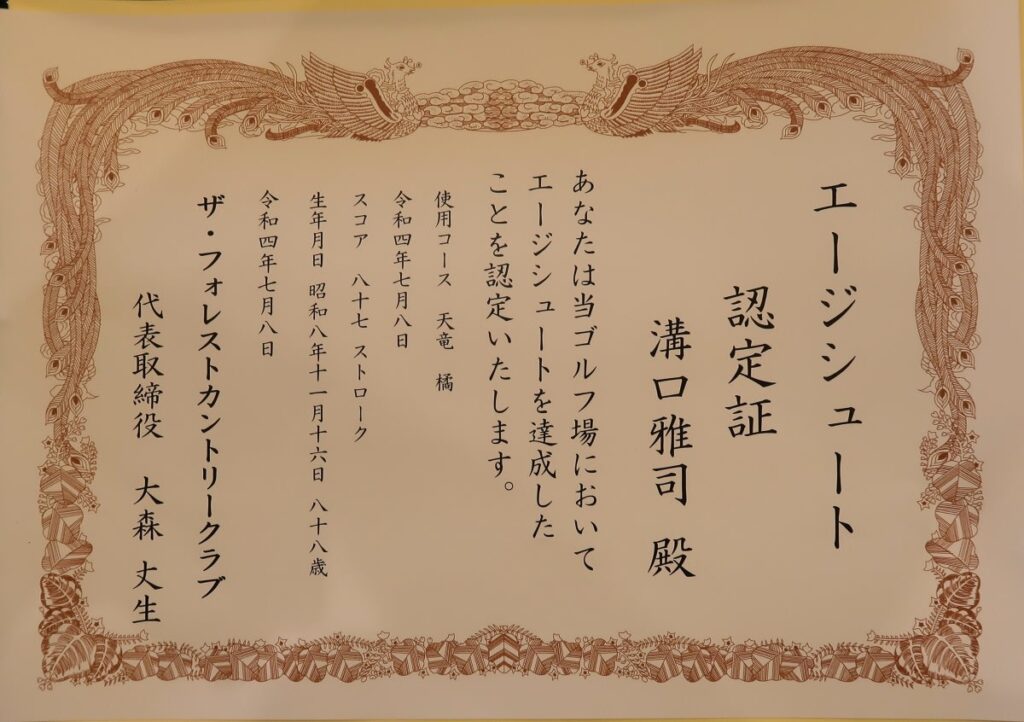 エージシュート
認定証
溝口雅司 殿
あなたは当ゴルフ場において
エージシュートを達成した
ことを認定いたします。
使用コース 天竜 橘
令和四年七月八日
スコア 八十七 ストローク
生年月日 昭和八年十一月十六日 八十八歳
令和四年七月八日
ザ・フォレストカントリークラブ
代表取締役 大森 丈生